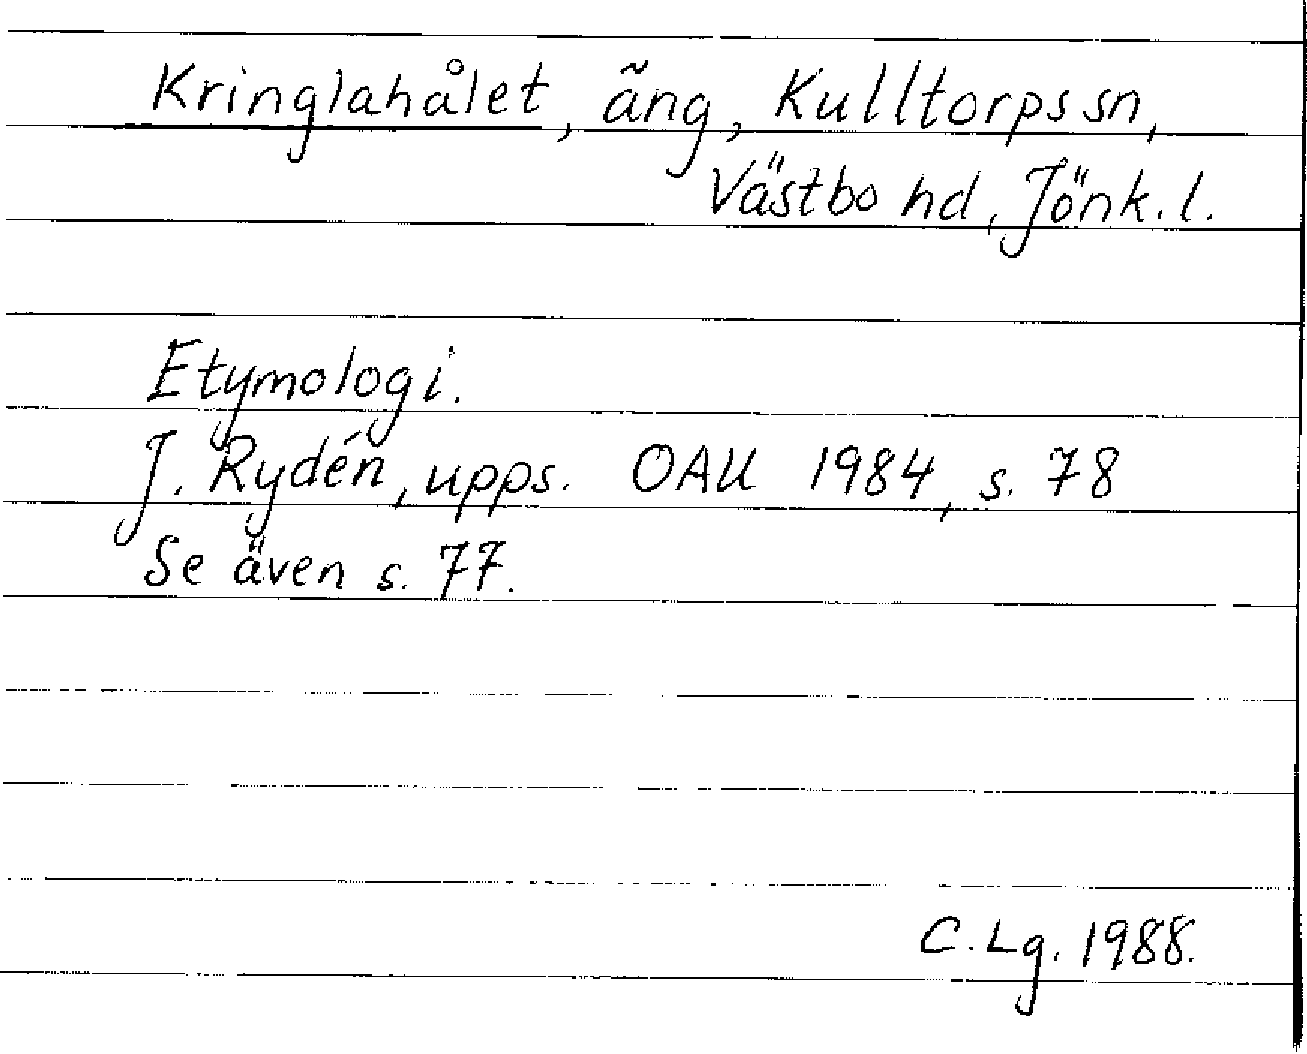 Kringlahålet, äng, Kulltorps sn,
Västbo hd, Jönk. l.
Etymologi.
J. Rydén, upps. OAU 1984, s. 78
Se även s. 77.
C. Lg. 1988.